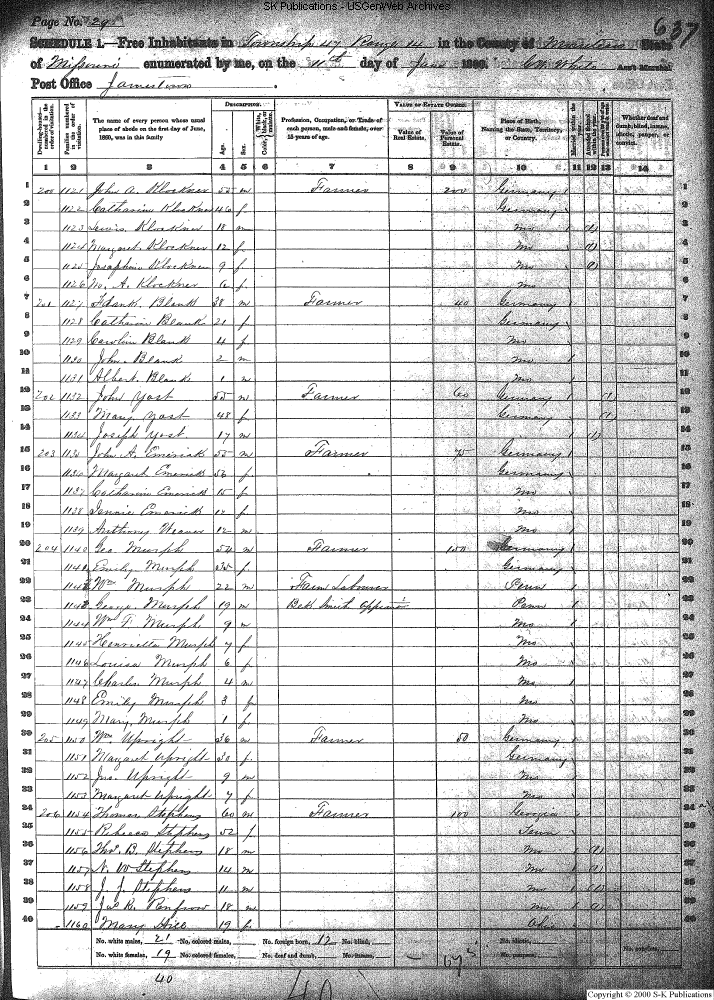 SK Publications - USGenWeb Archives
Page No. 29
637
SCHEDULE 1.—Free Inhabitants in Township 47 Range 14 in the County of Moniteau State
of Missouri enumerated by me, on the 11th day of 1860. White Ass't Marshal
Post Office Jamestown
Dwelling-houses—numbered in the order of visitation.
Families numbered in the order of visitation.
The name of every person whose usual place of abode on the first day of June, 1860, was in this family
DESCRIPTION.
Age.
Sex.
White, black, or mulatto.
Color,
Profession, Occupation, or Trade of each person, male and female, over 15 years of age.
VALUE OF ESTATE OWNED.
Value of Real Estate.
Value of Personal Estate.
Place of Birth, Naming the State, Territory, or Country.
Whether deaf and dumb, blind, insane, idiotic, pauper, or convict.
1 2 3 4 5 6 7 8 9 10 11 12 13 14
1 200 1121 John A. Klockner 55 m Farmer 200 Germany 1
2 1122 Catharine Klockner 46 f Germany 2
3 1123 Lewis Klockner 18 m Mo 3
4 1124 Margaret Klockner 12 f Mo 4
5 1125 Josephine Klockner 9 f Mo 5
6 1126 A. Klockner 6 f Mo 6
7 201 1127 Frank Blank 38 m Farmer 40 Germany 7
8 1128 Catharine Blank 21 f Germany 8
9 1129 Caroline Blank 4 f Mo 9
10 1130 John Blank 2 m Mo 10
11 1131 Albert Blank 1 m Mo 11
12 202 1132 John Yost 55 m Farmer 60 Germany 1 12
13 1133 Mary Yost 48 f Germany 1 13
14 1134 Joseph Yost 17 m 1 14
15 203 1135 John A. Emerick 55 m Farmer 75 Germany 15
16 1136 Margaret Emerick 56 f Germany 16
17 1137 Catharine Emerick 15 f Mo 17
18 1138 Jennie Emerick f Mo 18
19 1139 Anthony Weaver 12 m Mo 19
20 204 1140 Geo Murph 54 m Farmer 150 Germany 20
21 1141 Emily Murph 35 f Germany 21
22 1142 Wm Murph 22 m Farm Labourer Penn 22
23 1143 George Murph 19 m Blk Smith Penn 23
24 1144 Wm T. Murph 9 m Mo 24
25 1145 Henrietta Murph 7 f Mo 25
26 1146 Louisa Murph 6 f Mo 26
27 1147 Charles Murph 4 m Mo 27
28 1148 Emily Murph 3 f Mo 28
29 1149 Mary Murph 1 f Mo 29
30 205 1150 Wm Upright 36 m Farmer 50 Germany 30
31 1151 Margaret Upright 30 f Germany 31
32 1152 Jno. Upright 9 m Mo 32
33 1153 Margaret Upright 7 f Mo 33
34 206 1154 Thomas Stephens 60 m Farmer 100 Georgia 34
35 1155 Rebecca Stephens 52 f Tenn 35
36 1156 Thos. B. Stephens 18 m Mo 36
37 1157 N. W. Stephens 14 m Mo 37
38 1158 J. J. Stephens 11 m Mo 38
39 1159 Jas R. Renfrow 18 m Mo 39
40 1160 Mary Hill 19 f Ohio 40
No. white males, 21 No. colored males, No. foreign born, 12 No. blind, No. idiotic, No. convicts,
No. white females, 19 No. colored females, No. deaf and dumb, No. insane, No. paupers,
40
Copyright © 2000 S-K Publications